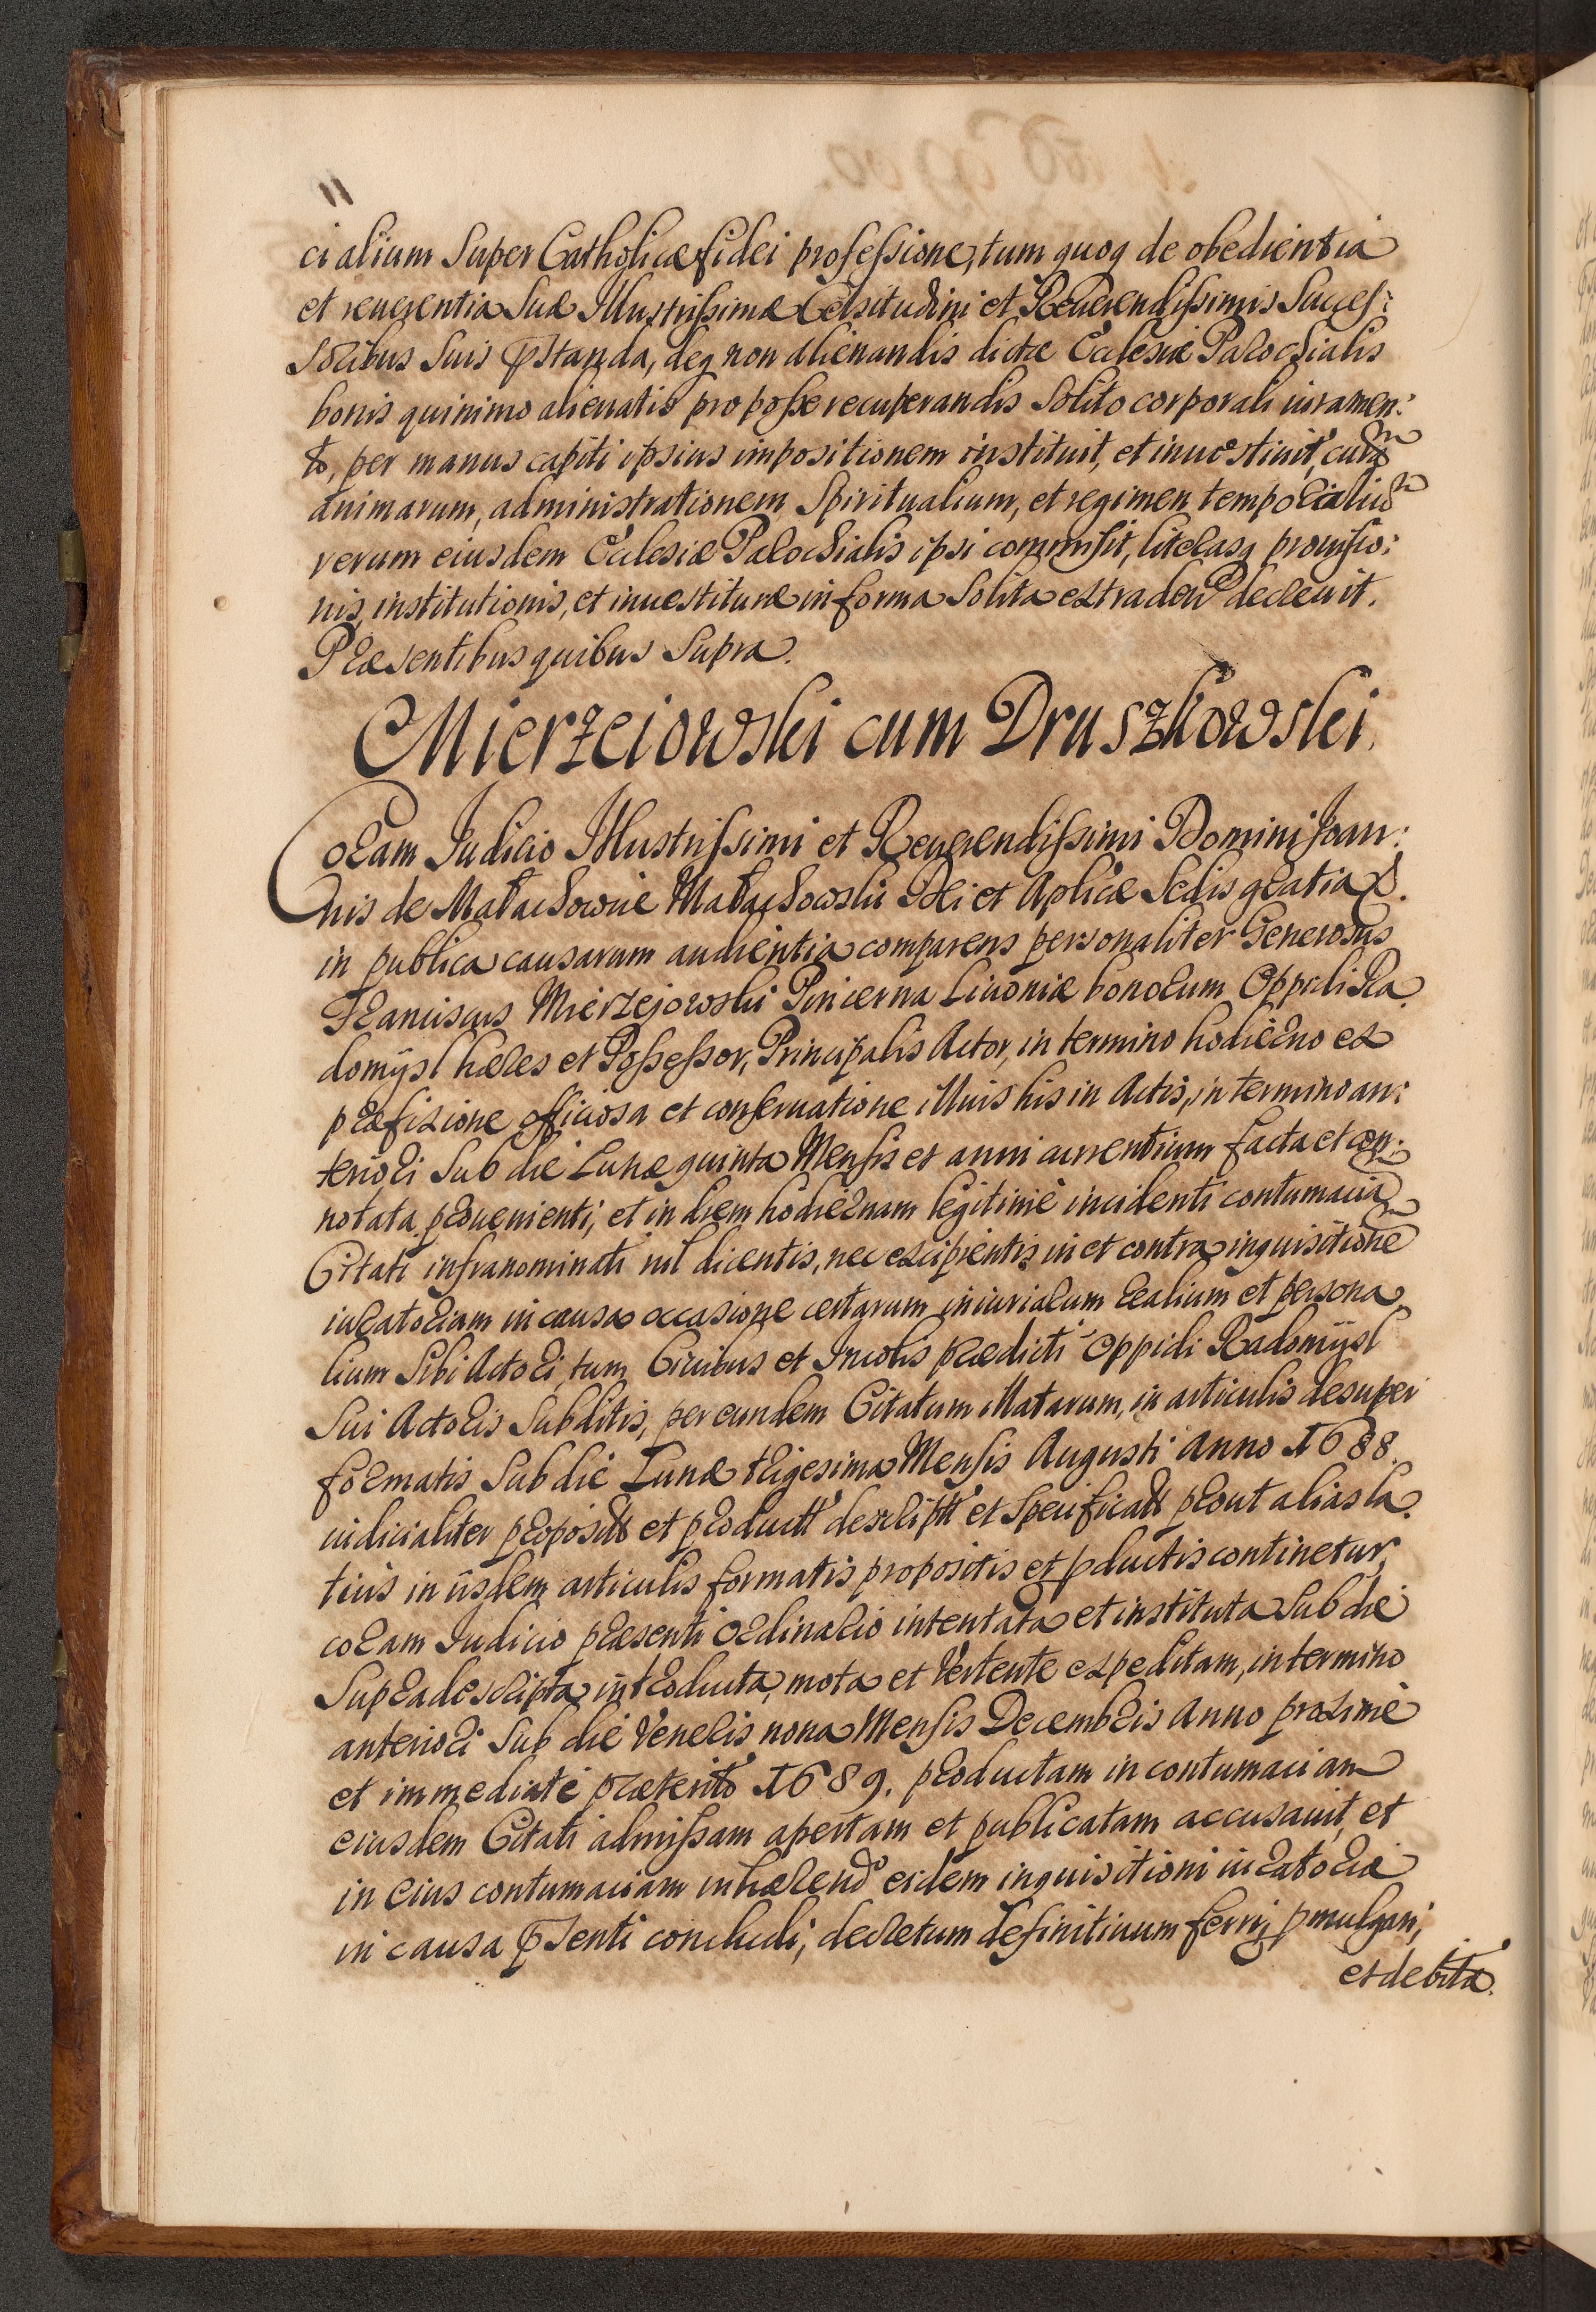 cialium Super Catholicæ fidei professione, tum quoq de obedientia
et reuerentia Suæ Illustrissimæ Celsitudini et Reuerendissimis Succes:
soribus Suis pstanda, deq non alienandis dictæ Ecclesiæ Parochialis
bonis quinimo alienatis pro posse recuperandis Solito corporali iuramen:
to, per manus capiti ipsius impositionem instituit, et inuestiuit, curā
animarum, administrationem Spiritualium, et regimen temporaliū
rerum eiusdem Ecclesiæ Parochialis ipsi commisit, literasq prouisio:
nis, institutionis, et inuestituræ in forma Solita extradeñ decreuit.
Præsentibus quibus Supra.
Mierzeiowski cum Druszkowski.
Coram Iudicio Illustrissimi et Reuerendissimi Domini Joan:
nis de Małachowice Małachowski Dei et Aplicæ Sedis gratia &.
in publica causarum audientia comparens personaliter Generosus
Franciscus Mierzejowski Pincerna Liuoniæ bonorum Oppidi Ra
domÿsl hæres et Possessor, Principalis Actor, in termino hodierno ex
præfixione officiosa et conseruatione illius his in Actis, in termino an:
teriori Sub die Lunæ quinta Mensis et anni currentium facta et con:
notata prouenienti, et in diem hodiernam legitimè incidenti contumaciā
Citati infranominati nil dicentis, nec excipientis in et contra inquisitionē
iuratoriam in causa occasione certarum iniuriarum realium et persona
lium Sibi Actori, tum Ciuibus et Incolis prædicti Oppidi Radomÿsl
Sui Actoris Subditis, per eundem Citatum illatarum, in articulis desuper
formatis Sub die Lunæ trigesima Mensis Augusti Anno 1688.
iudicialiter proposit̄ et product̄ descript̄ et Specificat̄ prout alias la
tius in iisdem articulis formatis propositis et pductis continetur,
coram Iudicio præsenti ordinario intentata et instituta Sub die
Supradescripta introducta, mota et Vertente expeditam, in termino
anteriori Sub die Veneris nona Mensis Decembris Anno proximè
et immediatè præterito 1689. productam in contumaciam
eiusdem Citati admissam apertam et publicatam accusauit, et
in Eius contumaciam inhærend̄ eidem inquisitioni iuratoriæ
in causa psenti concludi, decretum definitiuum ferri, pmulgari,
et debita